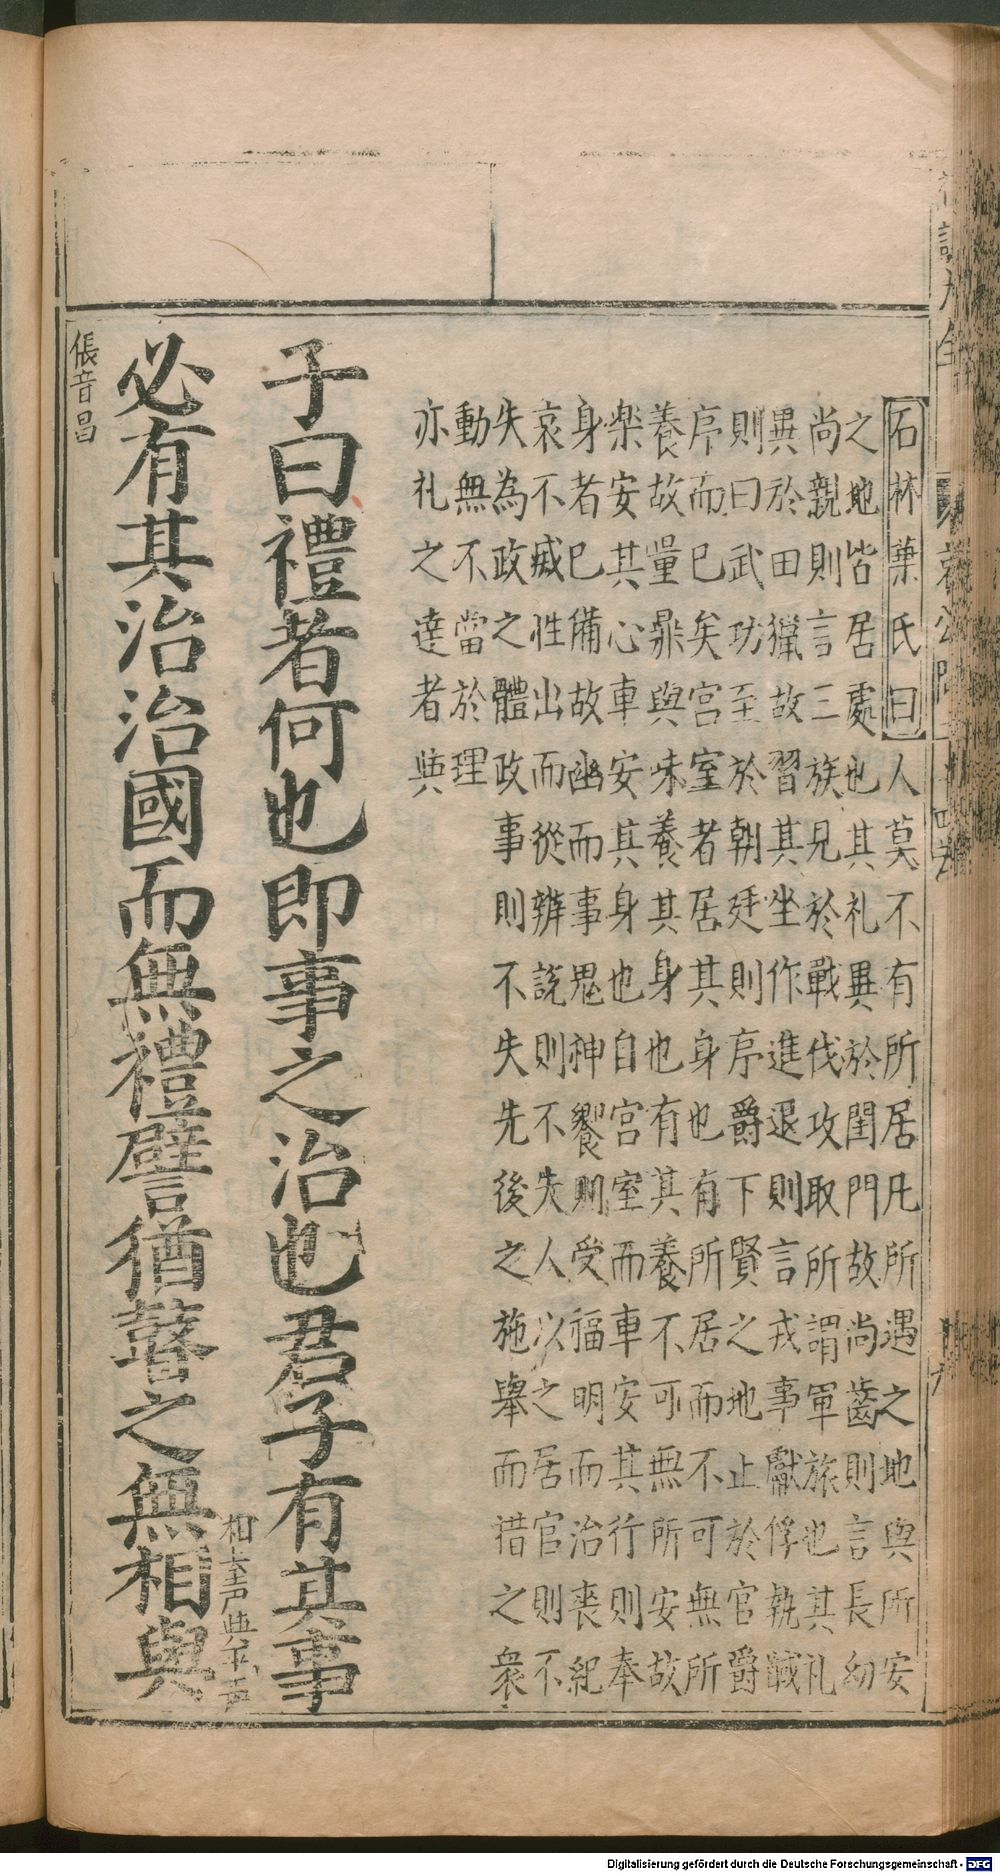 石林葉氏曰人莫不有所居凡所遇之地與所安
之地皆居處也其礼異於閨門故尚齒則言長幼
尚親則言三族見於戰伐攻取所謂軍旅也其礼
異於田獵故習其坐作進退則言戎事獻俘執馘
則曰武功至於朝廷則序爵下賢之地止於官爵
序而已矣宮室者居其身也有所居而不可無所
養故量鼎與味養其身也有其養不可無所安故
樂安其心車安其身也自宮室而車安其行則奉
身者已備故幽而事鬼神饗則受福明而治喪紀
哀不戚性出而從辨說則不失人以之居官則不
失為政之體政事則不失先後之施舉而措之衆
動無不當於理
亦礼之達者與
子曰禮者何也即事之治也君子有其事
必有其治治國而無禮譬猶瞽之無相與
相去声與平声
倀音昌
Digitalisierung gefördert durch die Deutsche Forschungsgemeinschaft - DFG